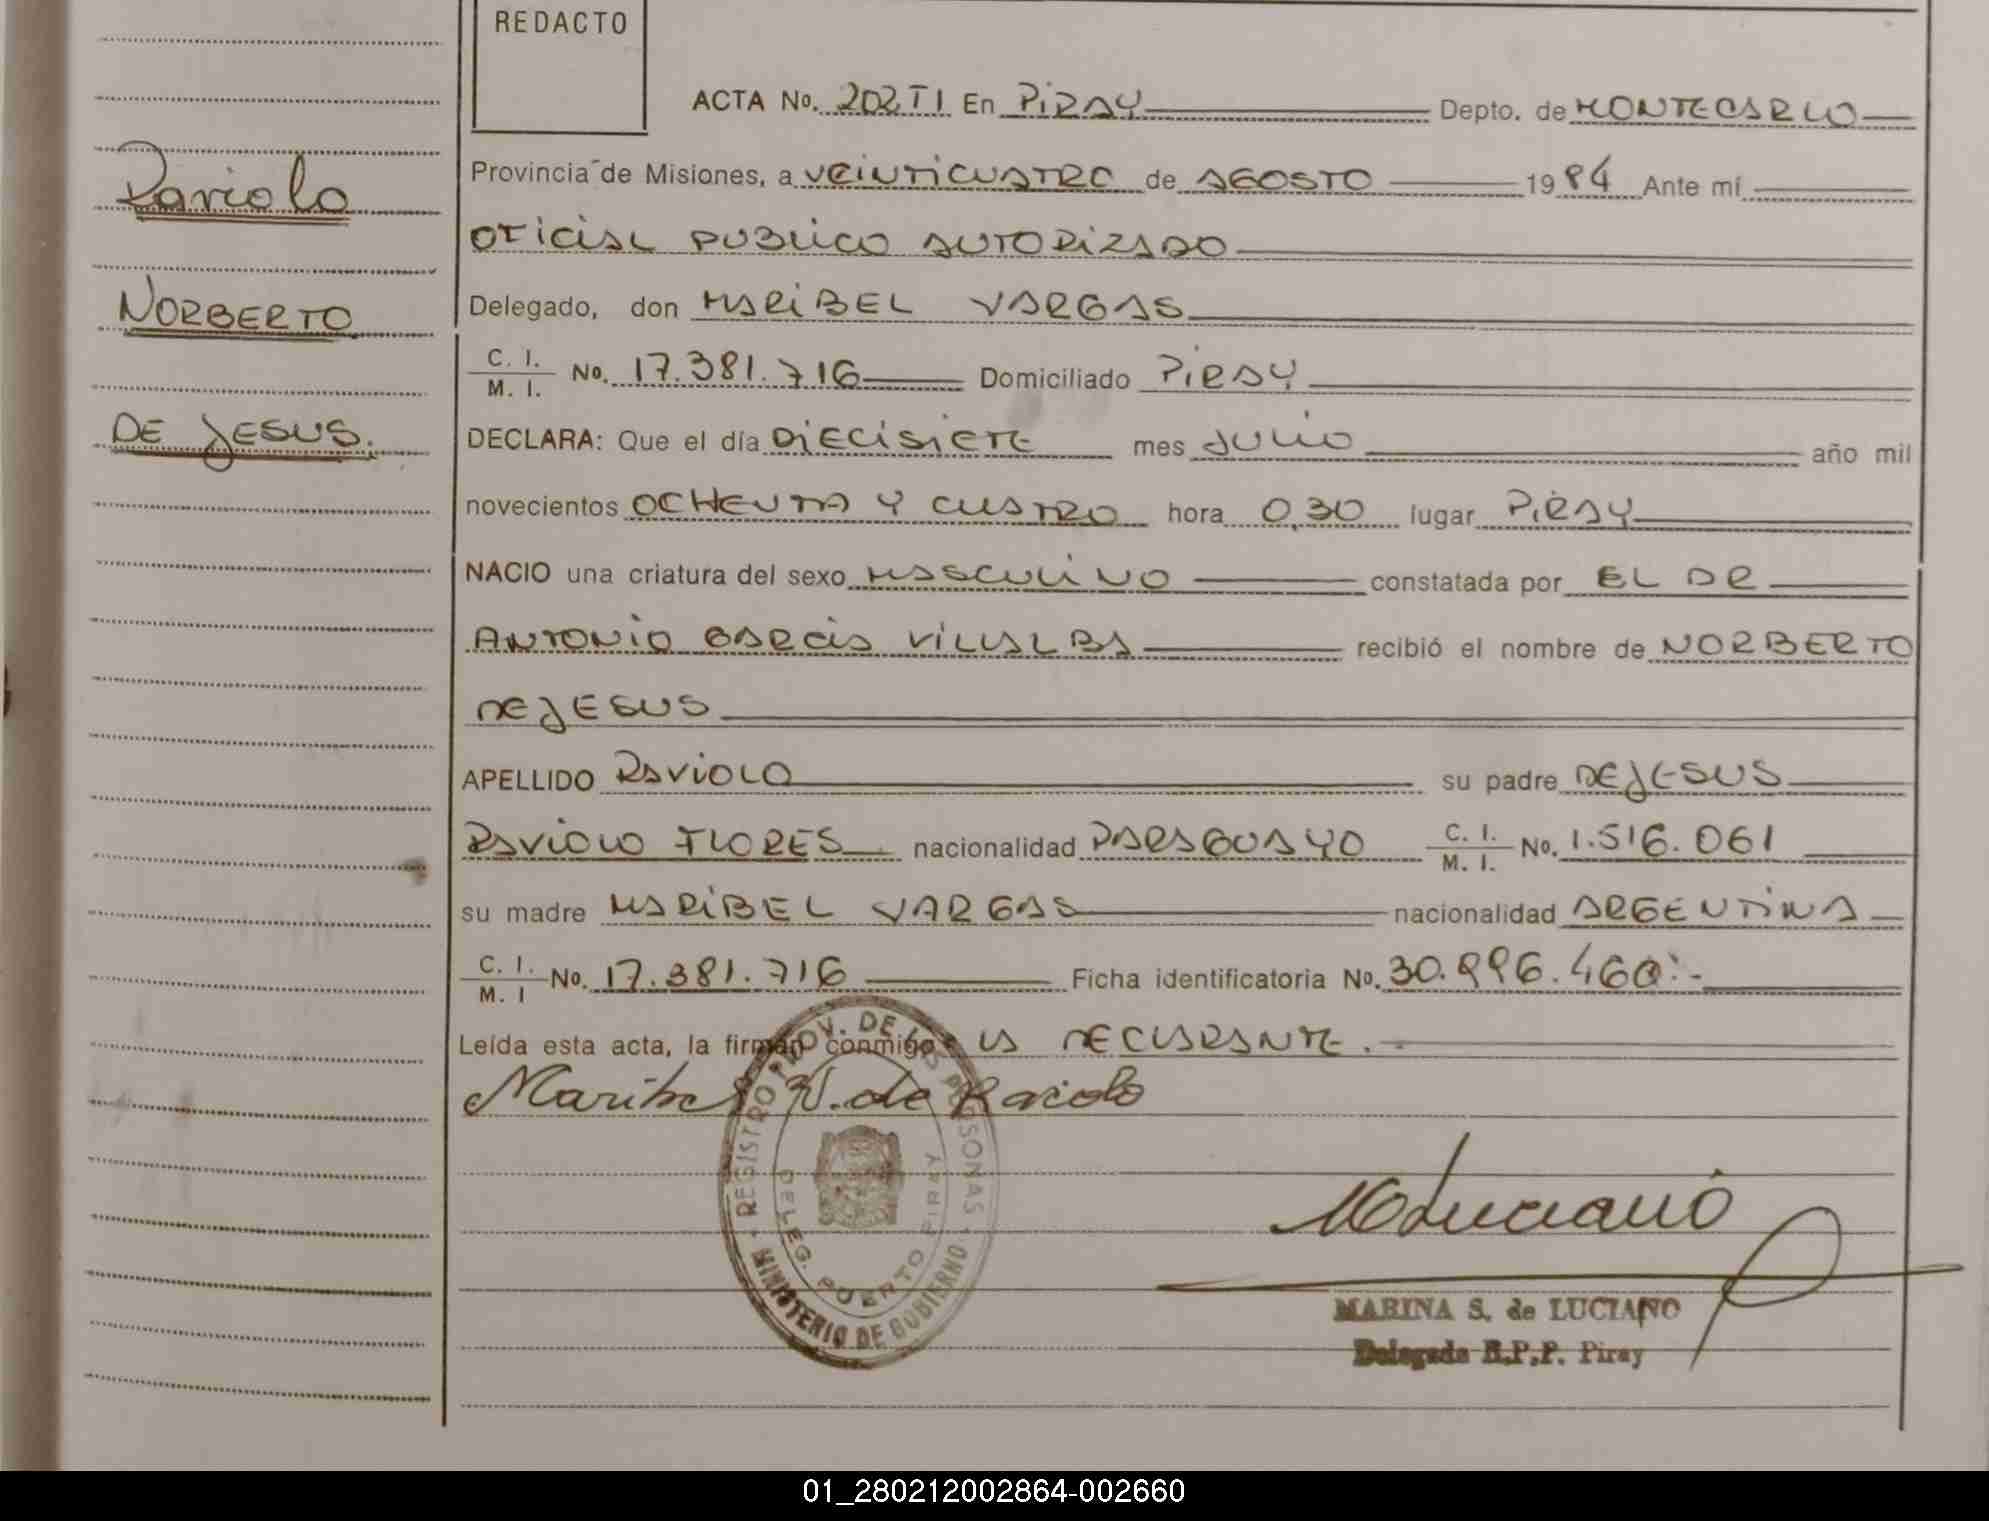 REDACTO
ACTA No. 202 TI En PIRAY Depto. de MONTECARLO
Raviolo
Provincia de Misiones, a VEINTICUATRO de AGOSTO 1984 Ante mí
OFICIAL PUBLICO AUTORIZADO
NORBERTO
Delegado, don MARIBEL VARGAS
C. I. / M. I. No. 17.381.716 Domiciliado PIRAY
DE JESUS.
DECLARA: Que el día DIECISIETE mes JULIO año mil
novecientos OCHENTA Y CUATRO hora 0,30 lugar PIRAY
NACIO una criatura del sexo MASCULINO constatada por EL DR
ANTONIO GARCIA VILLALBA recibió el nombre de NORBERTO
DE JESUS
APELLIDO RAVIOLO su padre DE JESUS
RAVIOLO FLORES nacionalidad PARAGUAYO C. I. / M. I. No. 1.516.061
su madre MARIBEL VARGAS nacionalidad ARGENTINA
C. I. / M. I No. 17.381.716 Ficha identificatoria No. 30.996.460:-
Leída esta acta, la firman conmigo LA DECLARANTE.-
Maribel V. de Raviolo
REGISTRO PROV. DE LAS PERSONAS
DELEG. PUERTO PIRAY
MINISTERIO DE GOBIERNO
MSdeLuciano
MARINA S. de LUCIANO
Delegada R.P.P. Piray
01_280212002864-002660